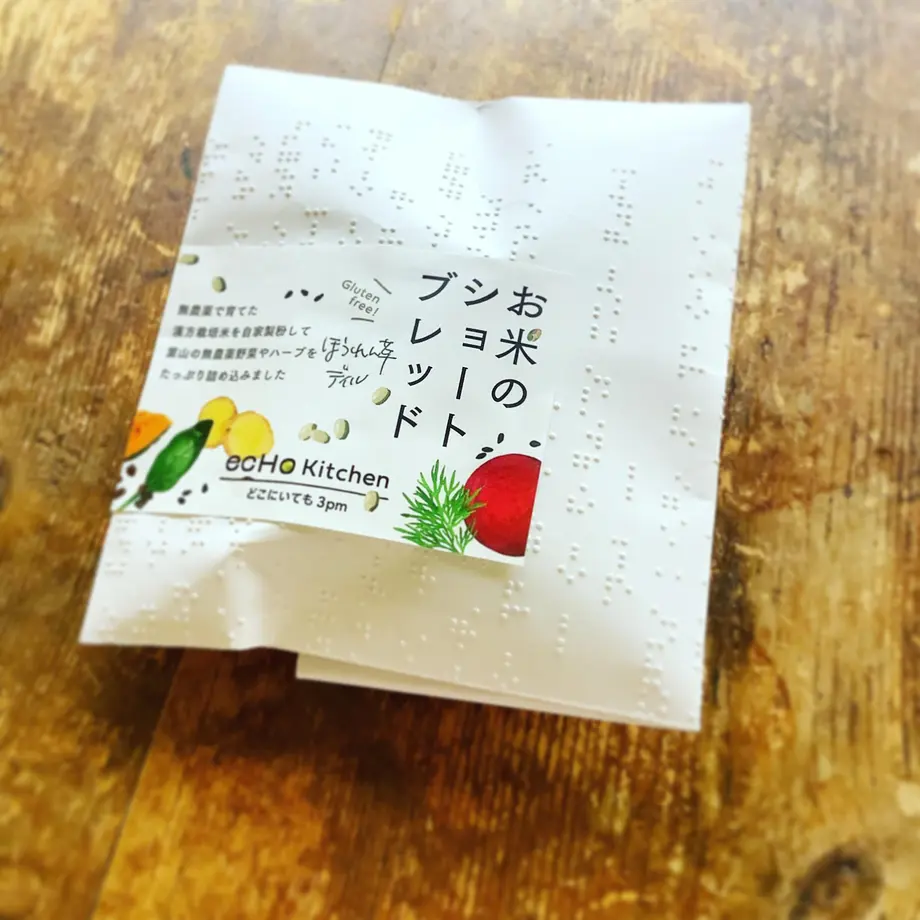 お米の
ショート
ブレッド
Gluten
free!
ほうれん草
ディル
無農薬で育てた
漢方栽培米を自家製粉して
富山の無農薬野菜やハーブを
たっぷり詰め込みました
ecHo Kitchen
どこにいても 3pm